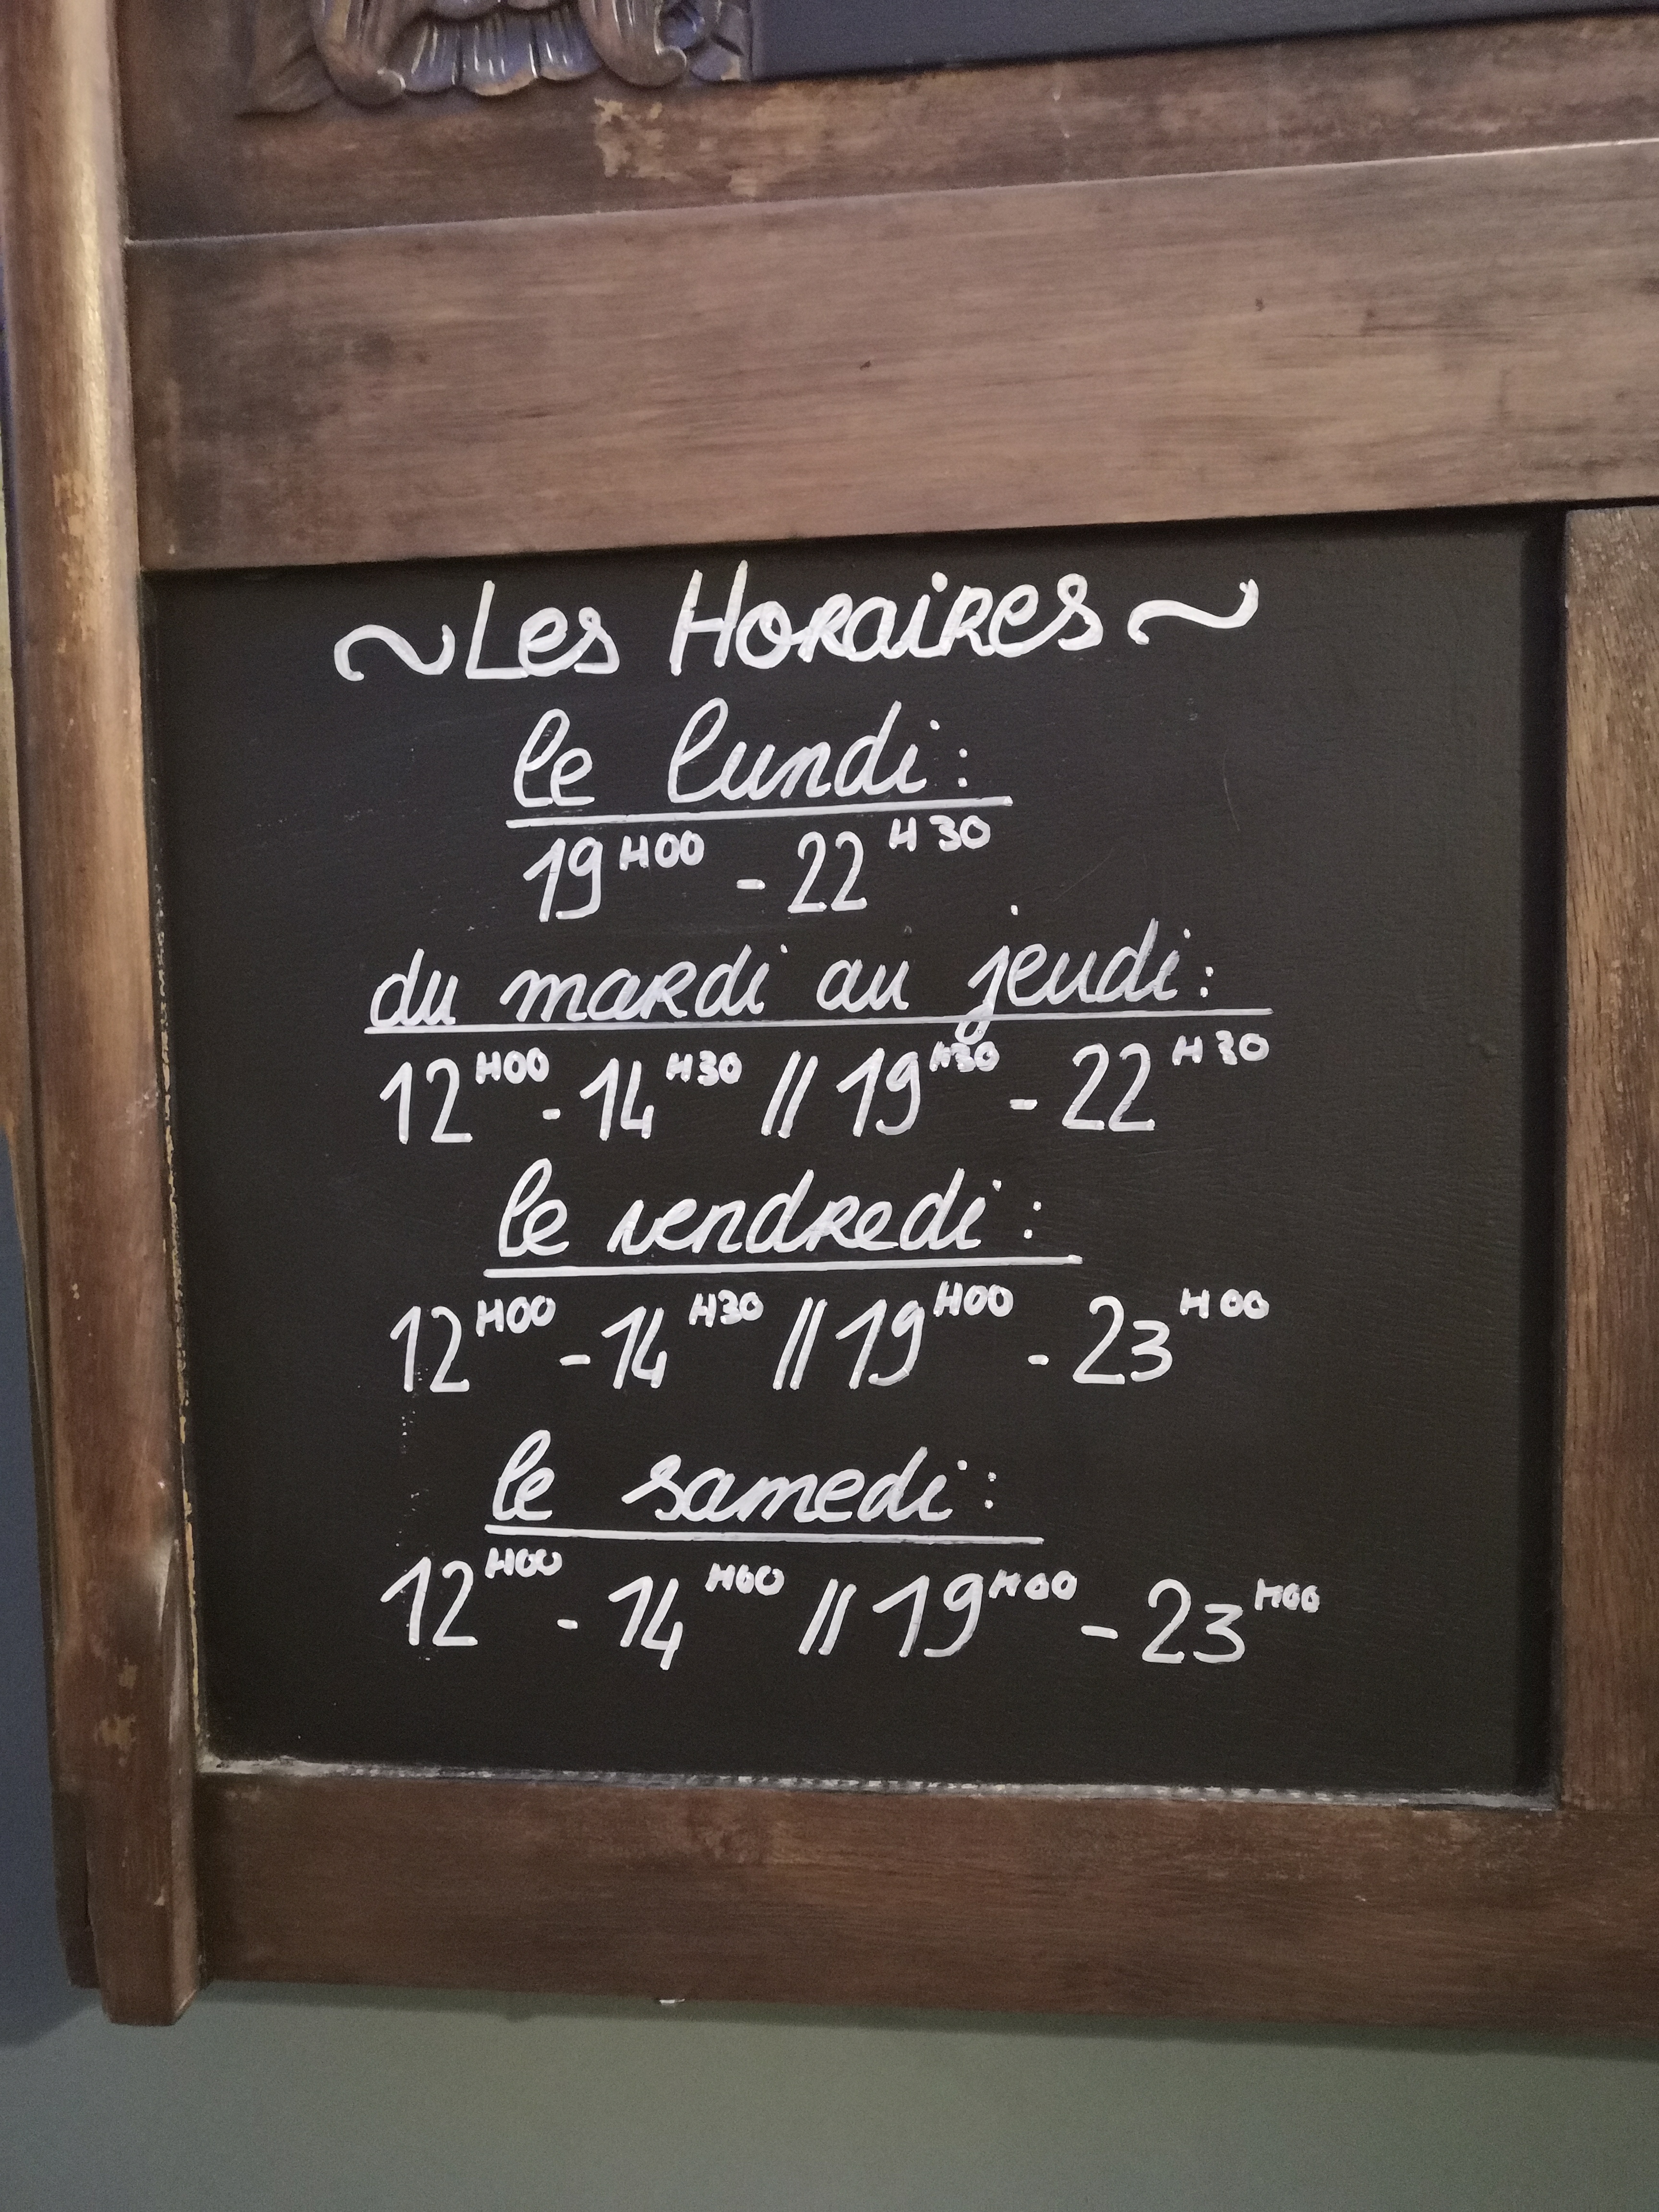 ~Les Horaires~
le lundi:
19H00 - 22H30
du mardi au jeudi:
12H00 - 14H30 // 19H30 - 22H30
le vendredi:
12H00 - 14H30 // 19H00 - 23H00
le samedi:
12H00 - 14H00 // 19H00 - 23H00